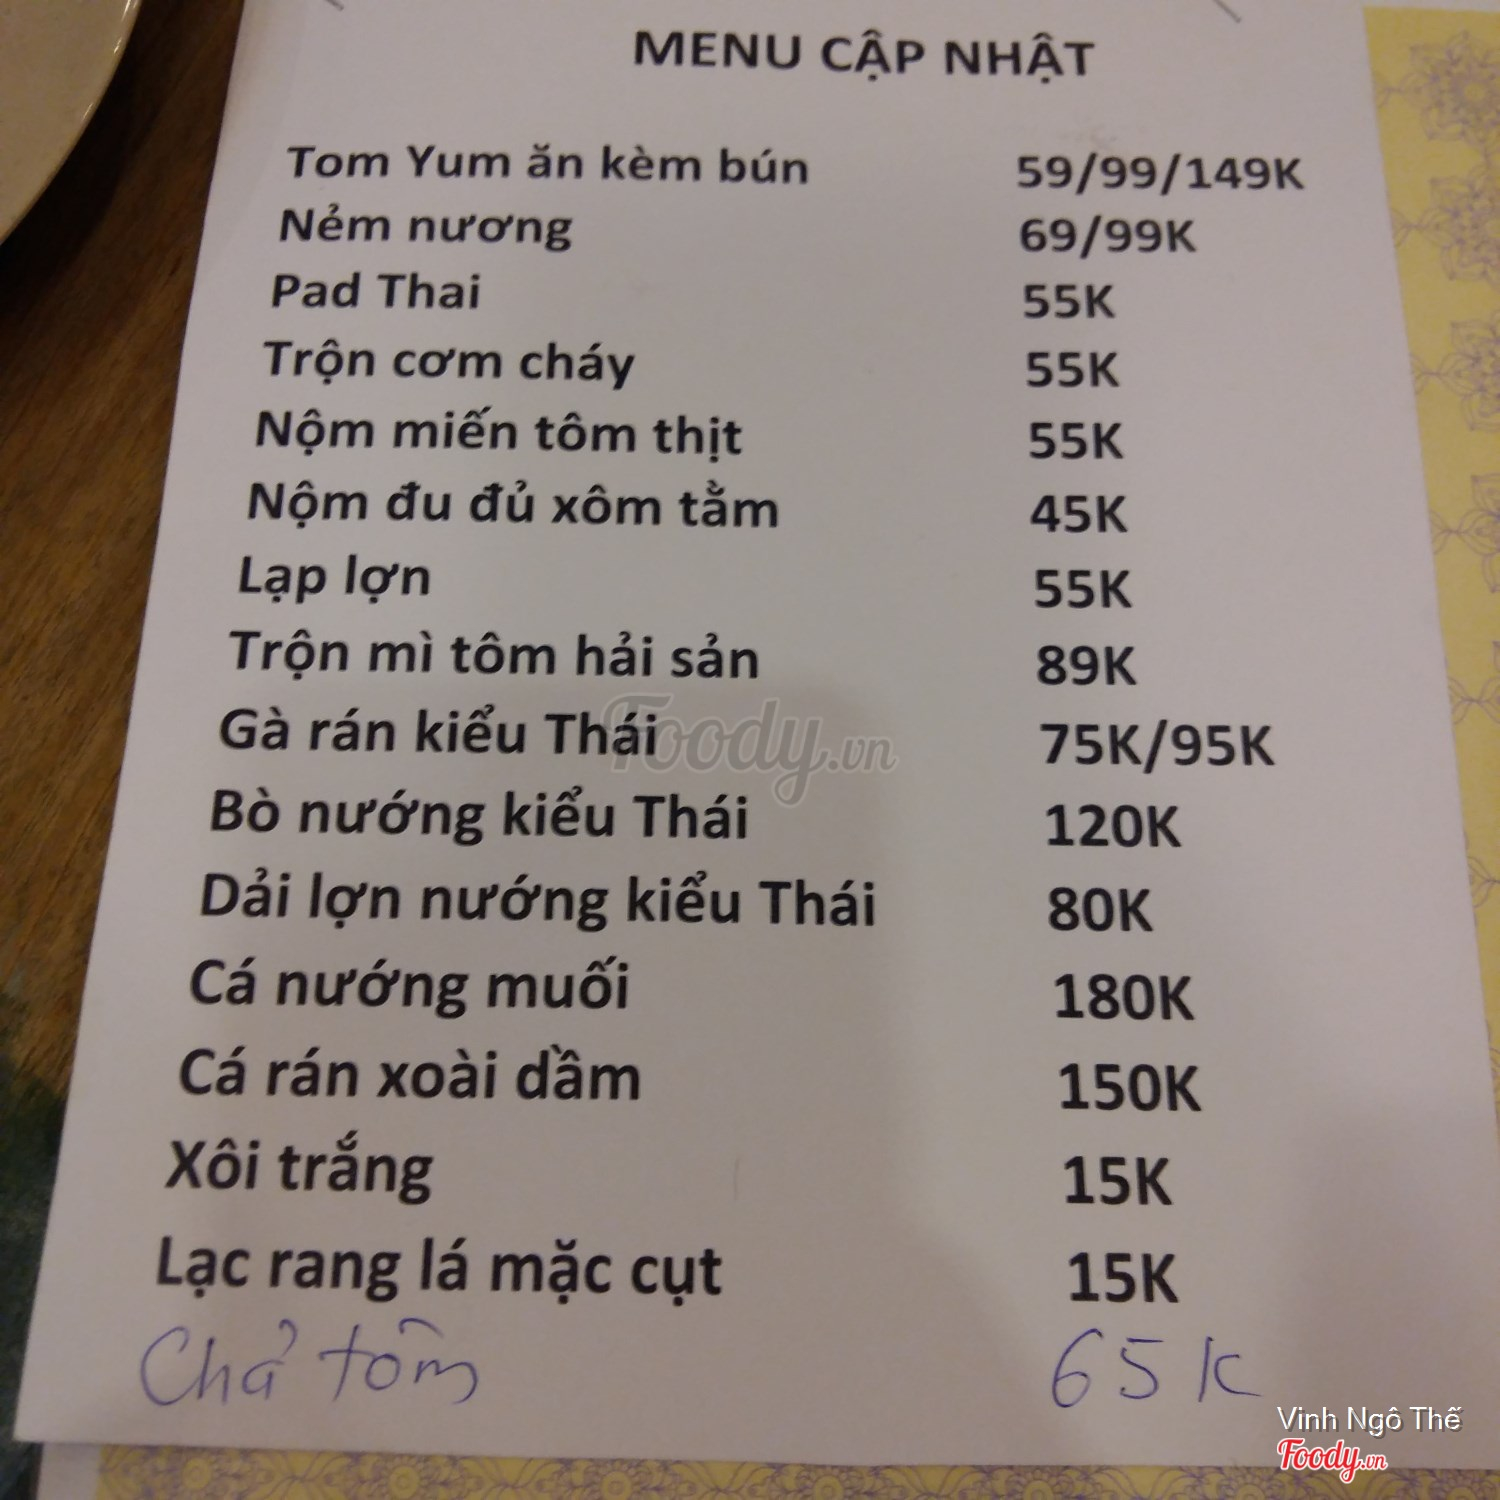 MENU CẬP NHẬT
Tom Yum ăn kèm bún 59/99/149K
Nẻm nương 69/99K
Pad Thai 55K
Trộn cơm cháy 55K
Nộm miến tôm thịt 55K
Nộm đu đủ xôm tằm 45K
Lạp lợn 55K
Trộn mì tôm hải sản 89K
Gà rán kiểu Thái 75K/95K
Foody.vn
Bò nướng kiểu Thái 120K
Dải lợn nướng kiểu Thái 80K
Cá nướng muối 180K
Cá rán xoài dầm 150K
Xôi trắng 15K
Lạc rang lá mặc cụt 15K
Chả tôm 65K
Vinh Ngô Thế
Foody.vn